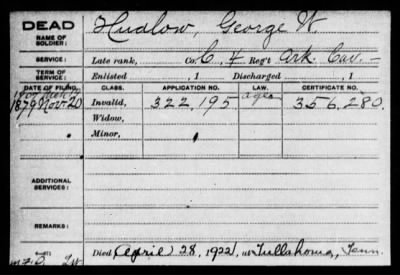 DEAD
NAME OF SOLDIER: Hudlow, George W.
SERVICE: Late rank, Co. C, 4 Reg't Ark. Cav.
TERM OF SERVICE: Enlisted , 1 Discharged , 1
DATE OF FILING. CLASS. APPLICATION NO. LAW. CERTIFICATE NO.
1879 Nov. 20 Invalid, 322.195 356.280.
Widow,
Minor,
ADDITIONAL SERVICES:
REMARKS:
Died April 28, 1922, at Tullahoma, Tenn.